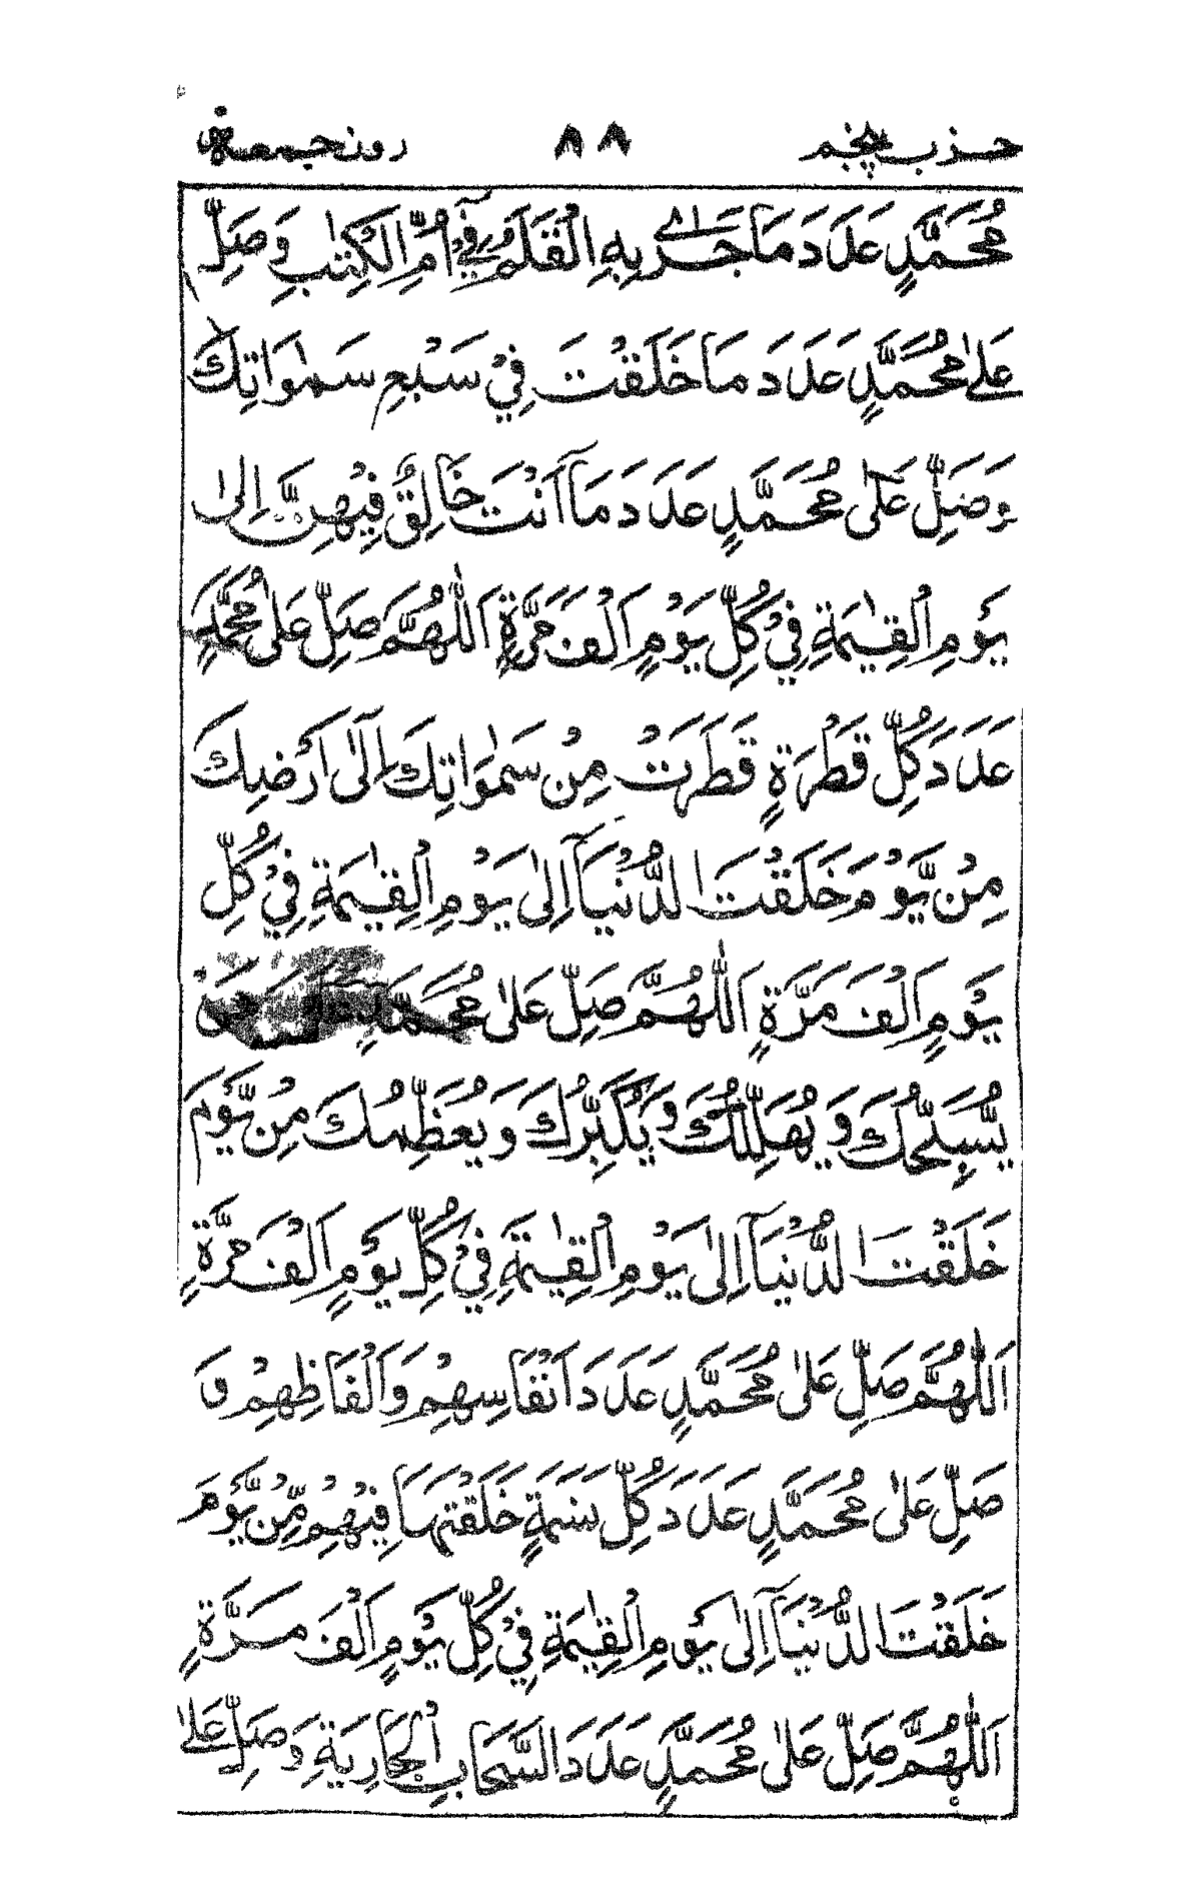 حزب پنجم ۸۸ روز جمعه
مُحَمَّدٍ عَدَدَ مَا جَرٰى بِهِ الْقَلَمُ فِيْٓ اُمِّ الْكِتٰبِ وَصَلِّ
عَلٰى مُحَمَّدٍ عَدَدَ مَا خَلَقْتَ فِيْ سَبْعِ سَمٰوَاتِكَ
وَصَلِّ عَلٰى مُحَمَّدٍ عَدَدَ مَآ اَنْتَ خَالِقٌ فِيْهِنَّ اِلٰى
يَوْمِ الْقِيٰمَةِ فِيْ كُلِّ يَوْمٍ اَلْفَ مَرَّةٍ اَللّٰهُمَّ صَلِّ عَلٰى مُحَمَّدٍ
عَدَدَ كُلِّ قَطْرَةٍ قَطَرَتْ مِنْ سَمٰوَاتِكَ اِلٰٓى اَرْضِكَ
مِنْ يَّوْمَ خَلَقْتَ الدُّنْيَآ اِلٰى يَوْمِ الْقِيٰمَةِ فِيْ كُلِّ
يَوْمٍ اَلْفَ مَرَّةٍ اَللّٰهُمَّ صَلِّ عَلٰى مُحَمَّدٍ عَدَدَ مَنْ
يُّسَبِّحُكَ وَيُهَلِّلُكَ وَيُكَبِّرُكَ وَيُعَظِّمُكَ مِنْ يَّوْمَ
خَلَقْتَ الدُّنْيَآ اِلٰى يَوْمِ الْقِيٰمَةِ فِيْ كُلِّ يَوْمٍ اَلْفَ مَرَّةٍ
اَللّٰهُمَّ صَلِّ عَلٰى مُحَمَّدٍ عَدَدَ اَنْفَاسِهِمْ وَاَلْفَاظِهِمْ وَ
صَلِّ عَلٰى مُحَمَّدٍ عَدَدَ كُلِّ نَسَمَةٍ خَلَقْتَهَا فِيْهِمْ مِّنْ يَّوْمَ
خَلَقْتَ الدُّنْيَآ اِلٰى يَوْمِ الْقِيٰمَةِ فِيْ كُلِّ يَوْمٍ اَلْفَ مَرَّةٍ
اَللّٰهُمَّ صَلِّ عَلٰى مُحَمَّدٍ عَدَدَ السَّحَابِ الْجَارِيَةِ وَصَلِّ عَلٰى